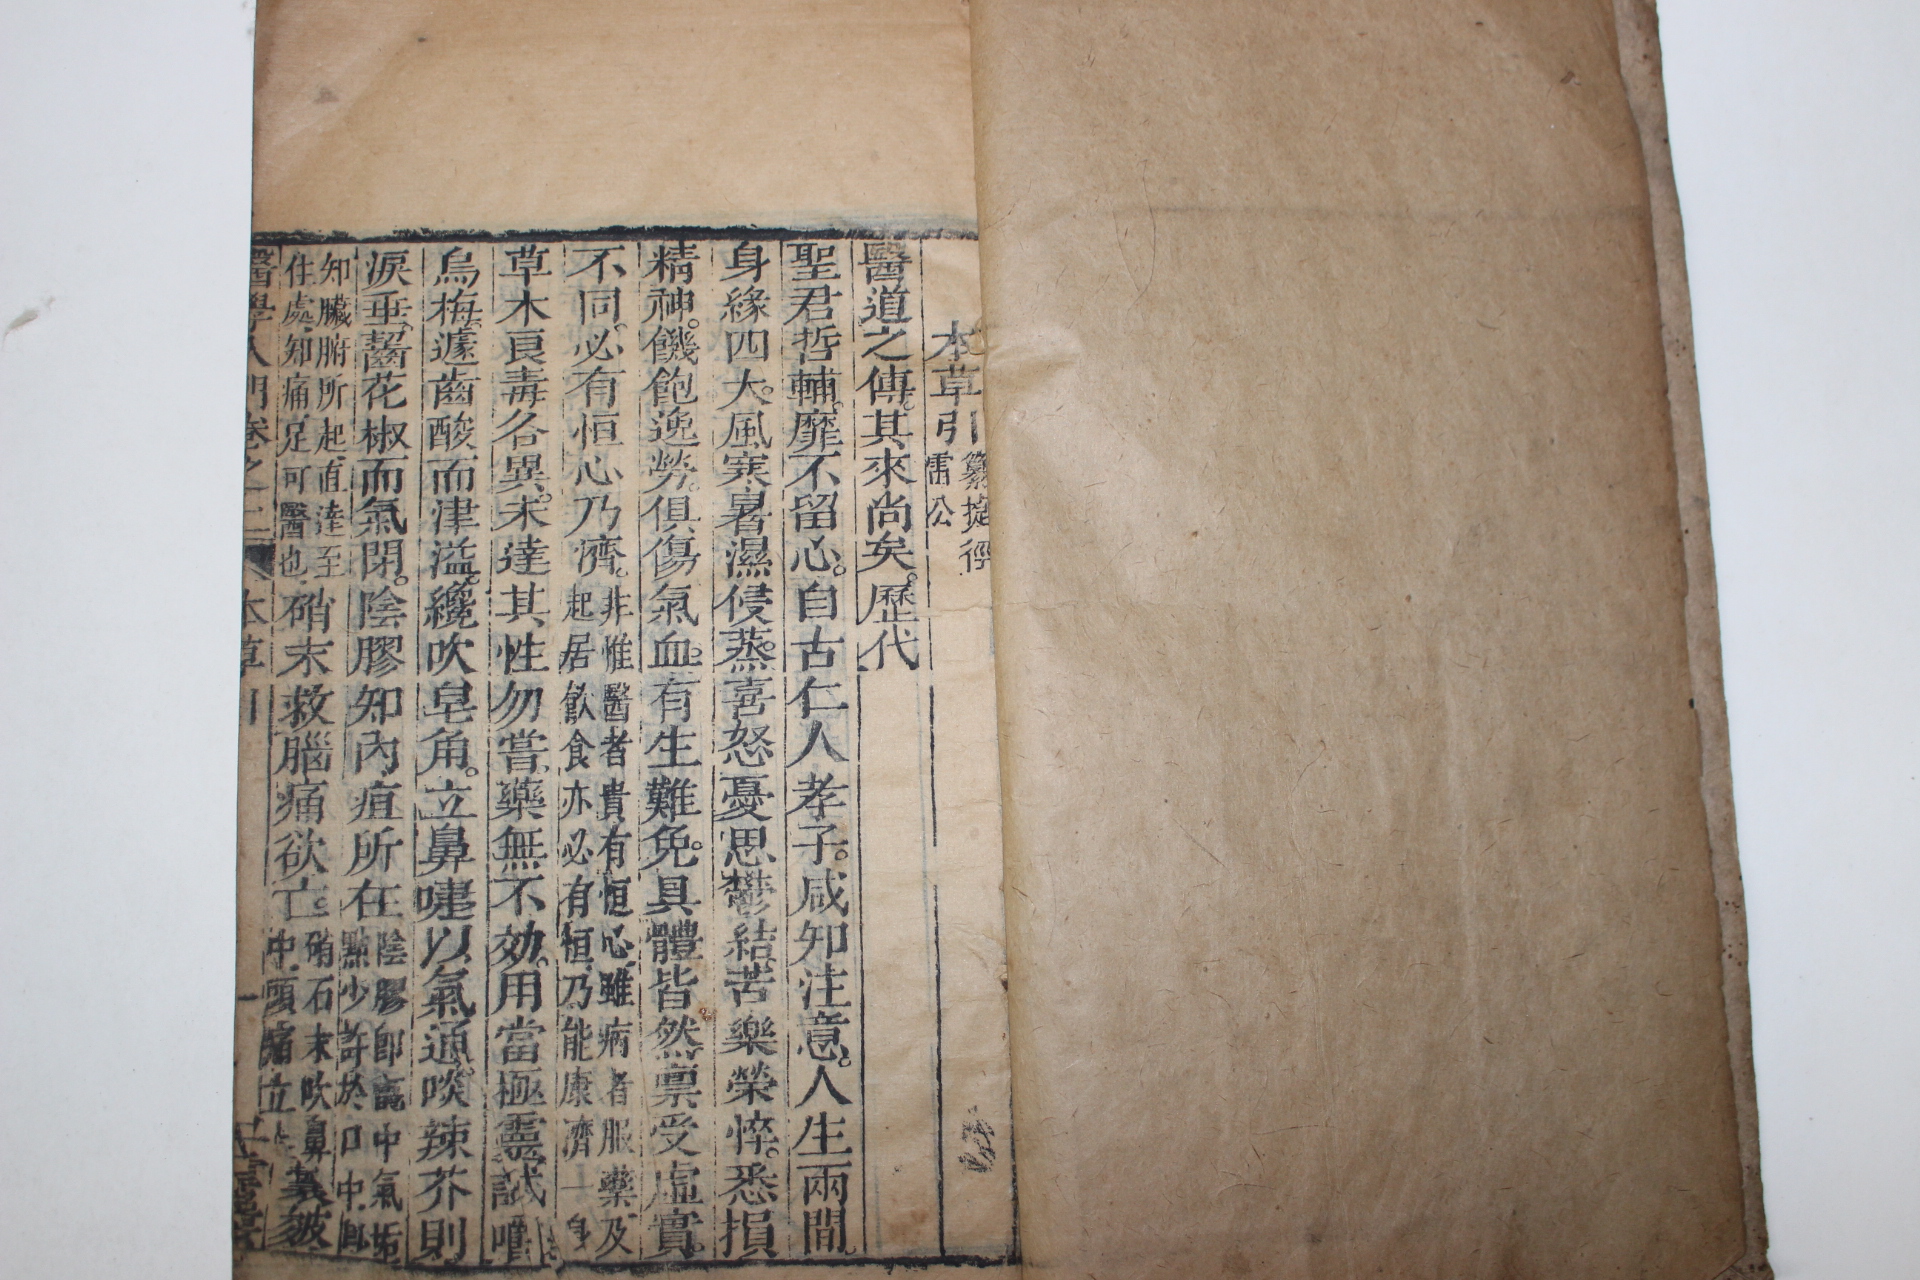 本草引 纂捷徑雷公
醫道之傳。其來尚矣。歷代
聖君哲輔。靡不留心。自古仁人孝子。咸知注意。人生兩間。
身緣四大。風寒暑濕侵蒸。喜怒憂思鬱結。苦樂榮悴。悉損
精神。饑飽逸勞。俱傷氣血。有生難免。具體皆然。稟受虛實。
不同。必有恒心乃濟。非惟醫者貴有恒心。雖病者服藥及起居飲食亦必有恒。乃能康濟一身
草木良毒各異。未達其性勿嘗。藥無不効。用當極靈。試嚐
烏梅。遽齒酸而津溢。纔吹皂角。立鼻嚏以氣通。啖辣芥則
淚垂。齧花椒而氣閉。陰膠知內疽所在 陰膠即甑中氣垢點少許於口中。即
知臟腑所起。直達至住處。知痛足可醫也。硝末救腦痛欲亡。硝石末吹鼻中。頭痛立止 
醫學入門卷之二 本草引 一